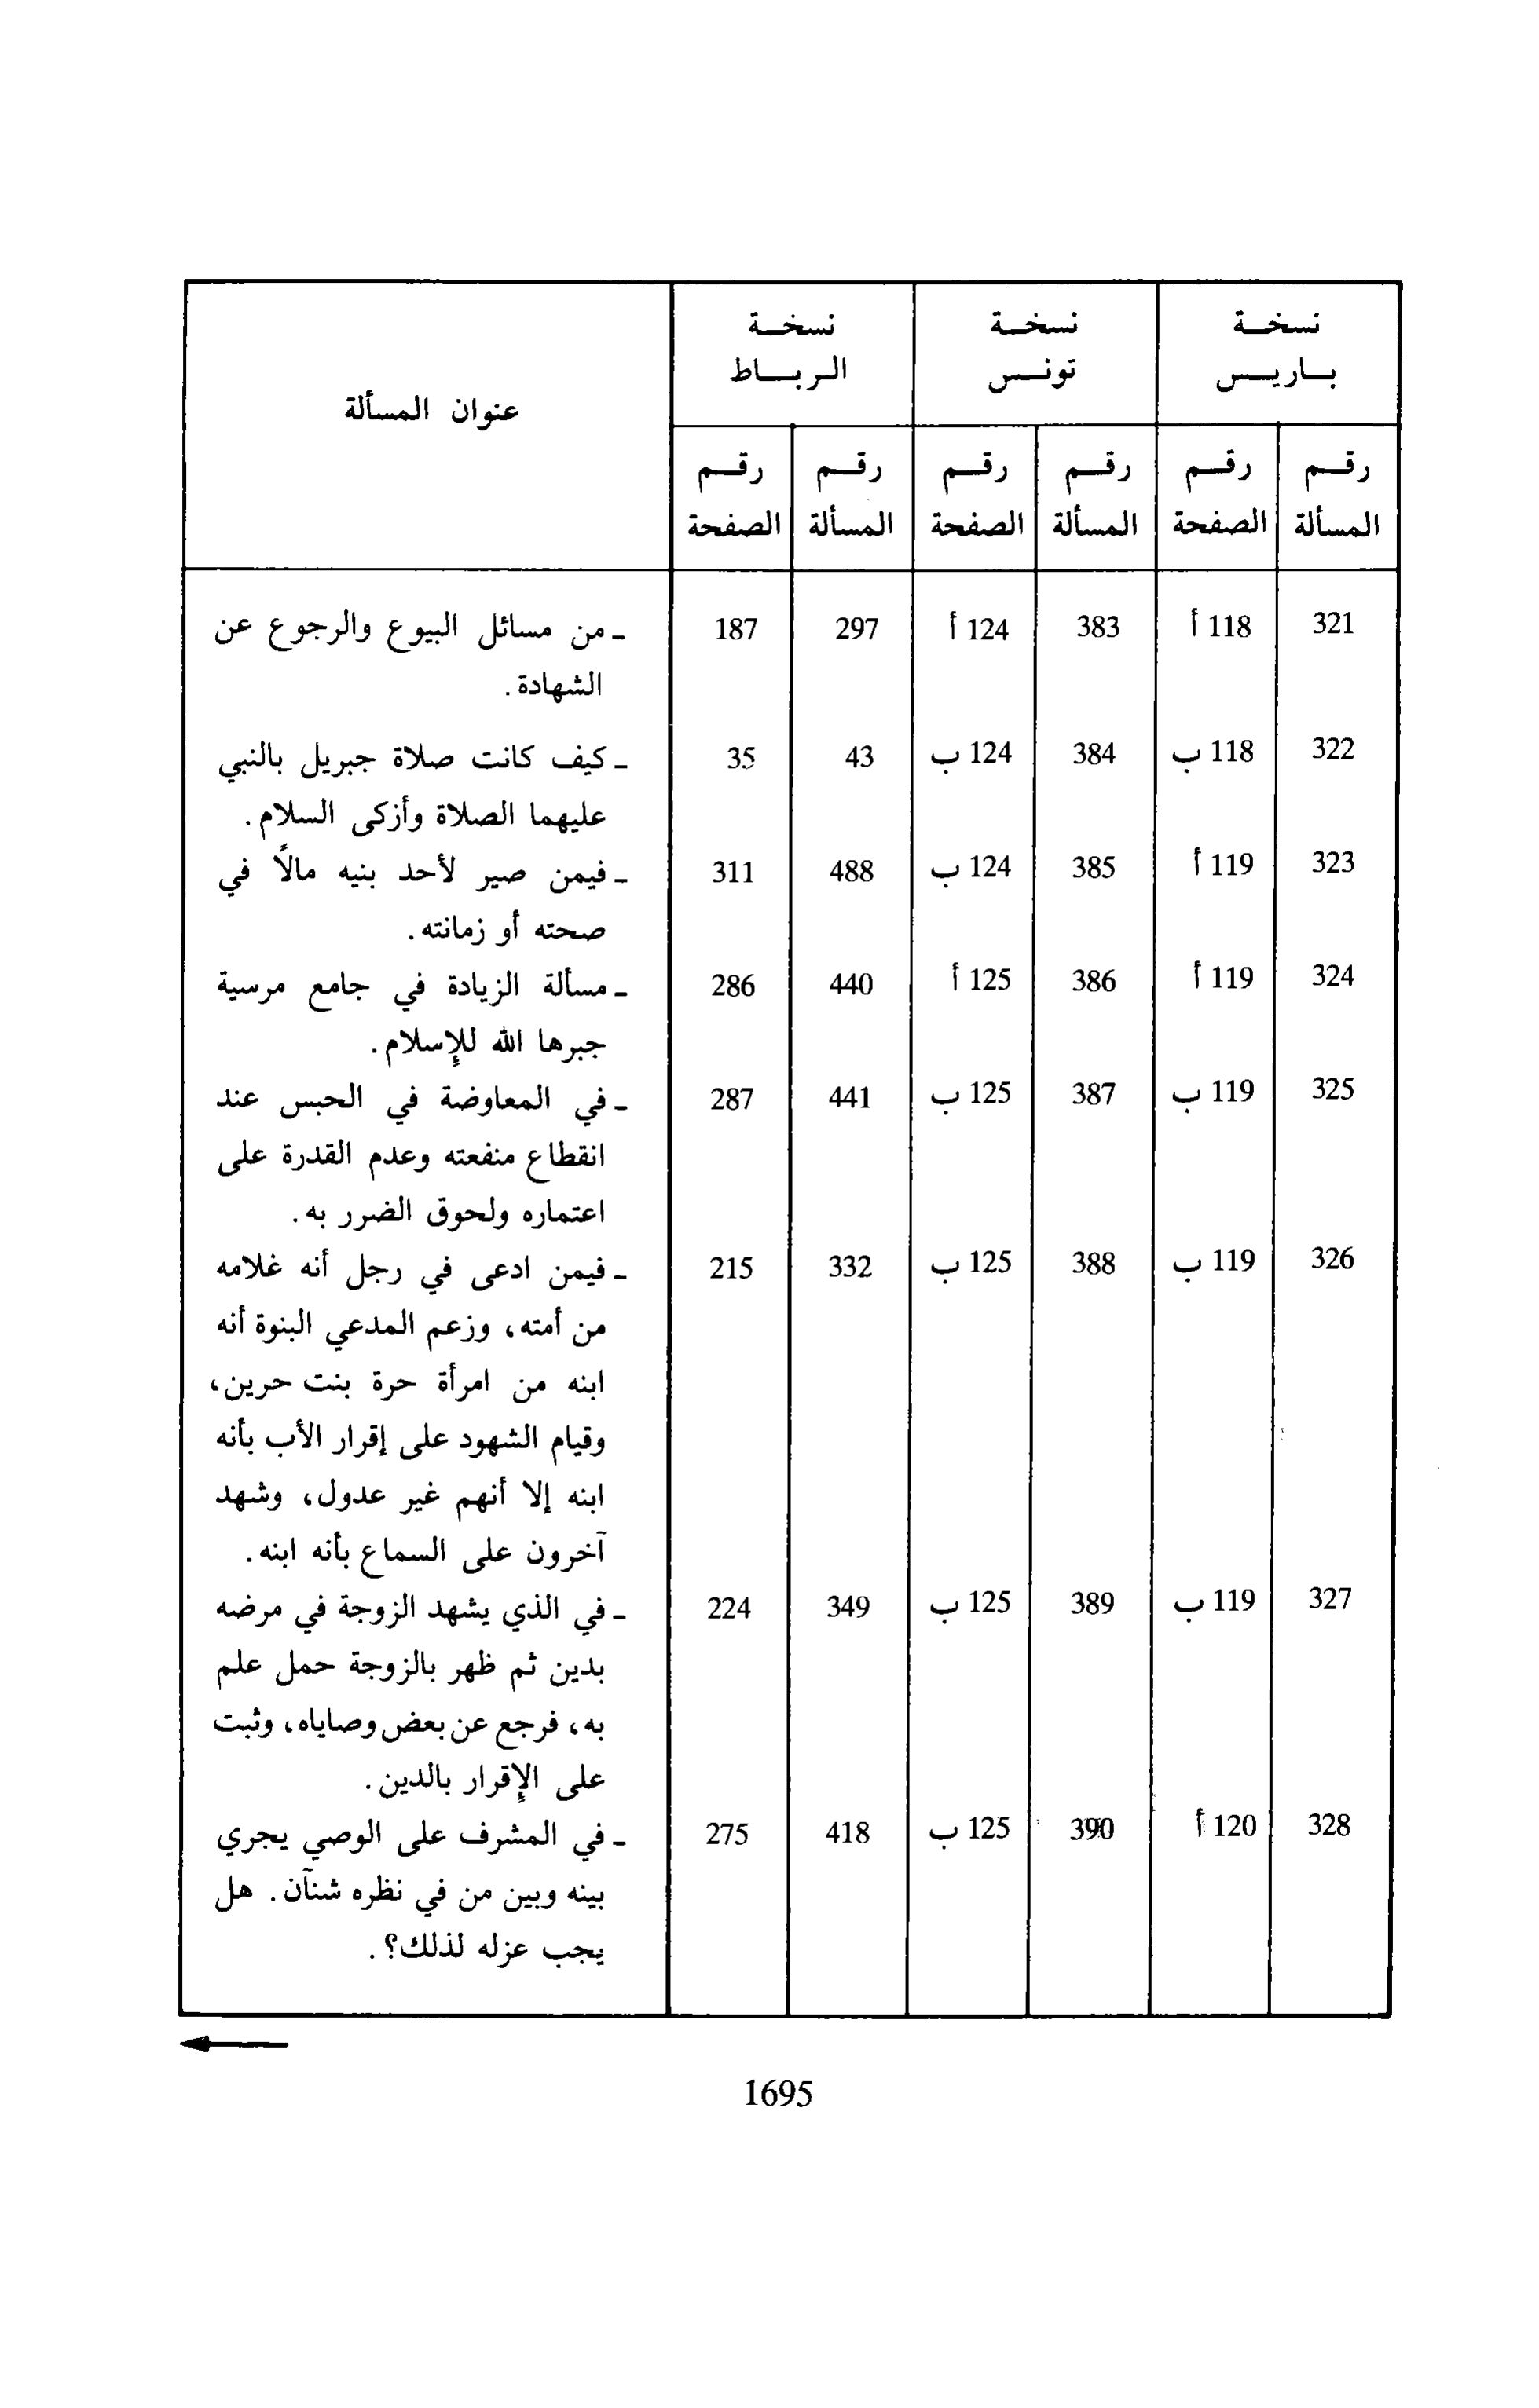 نسخة نسخة نسخة
باريس تونس الرباط
عنوان المسألة
رقم رقم رقم رقم رقم رقم
المسألة الصفحة المسألة الصفحة المسألة الصفحة
321 118 أ 383 124 أ 297 187 - من مسائل البيوع والرجوع عن
الشهادة.
322 118 ب 384 124 ب 43 35 - كيف كانت صلاة جبريل بالنبي
عليهما الصلاة وأزكى السلام.
323 119 أ 385 124 ب 488 311 - فيمن صير لأحد بنيه مالاً في
صحته أو زمانته.
324 119 أ 386 125 أ 440 286 - مسألة الزيادة في جامع مرسية
جبرها الله للإسلام.
325 119 ب 387 125 ب 441 287 - في المعاوضة في الحبس عند
انقطاع منفعته وعدم القدرة على
اعتماره ولحوق الضرر به.
326 119 ب 388 125 ب 332 215 - فيمن ادعى في رجل أنه غلامه
من أمته، وزعم المدعي البنوة أنه
ابنه من امرأة حرة بنت حرين،
وقيام الشهود على إقرار الأب بأنه
ابنه إلا أنهم غير عدول، وشهد
آخرون على السماع بأنه ابنه.
327 119 ب 389 125 ب 349 224 - في الذي يشهد الزوجة في مرضه
بدين ثم ظهر بالزوجة حمل علم
به، فرجع عن بعض وصاياه، وثبت
على الإقرار بالدين.
328 120 أ 390 125 ب 418 275 - في المشرف على الوصي يجري
بينه وبين من في نظره شنآن. هل
يجب عزله لذلك؟.
1695